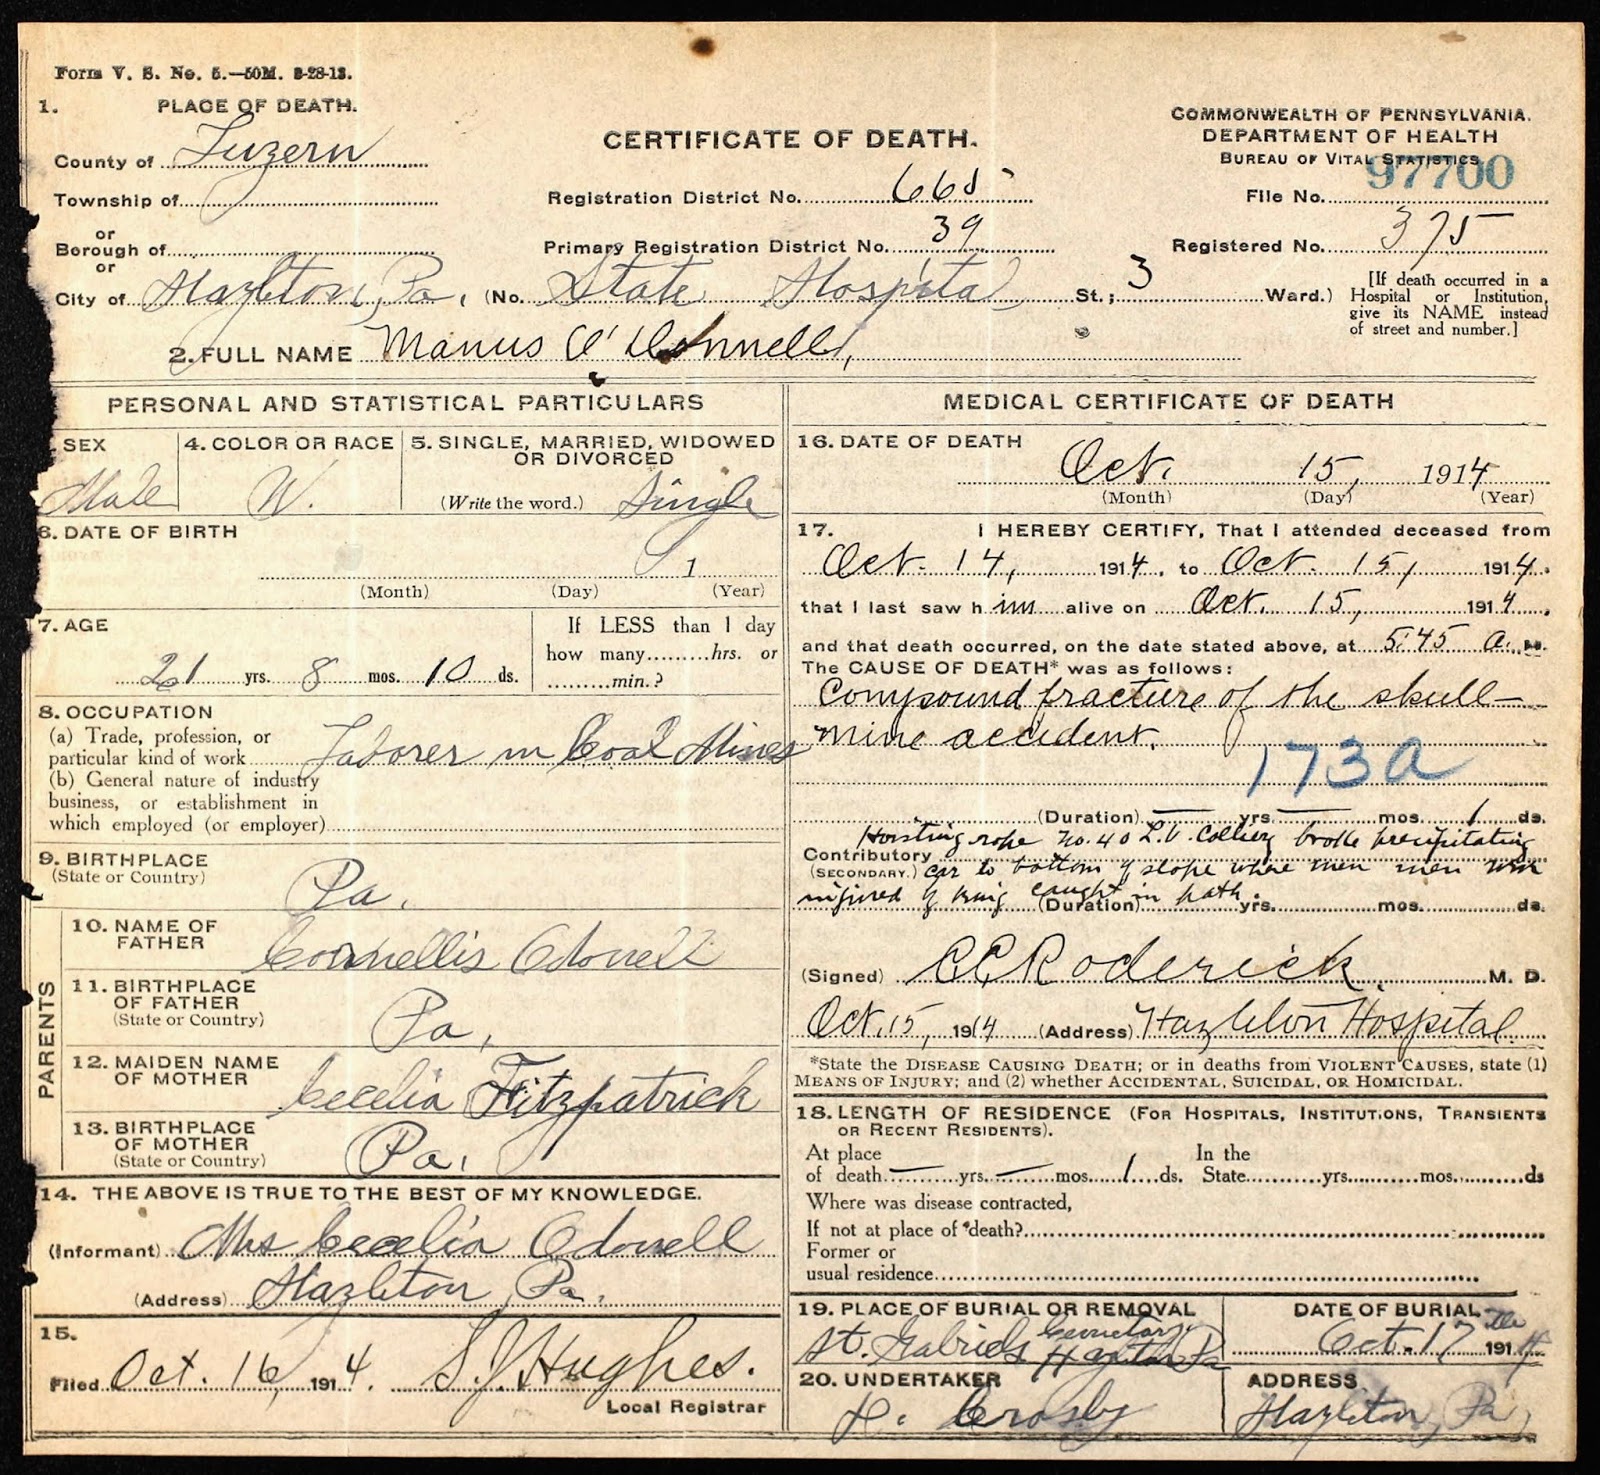 Form V. S. No. 5.—50M. 3-28-13.
1. PLACE OF DEATH.
County of Luzern
Township of
or
Borough of
or
City of Hazleton, Pa. (No. State Hospital, St.; 3 Ward.)
CERTIFICATE OF DEATH.
Registration District No. 668
Primary Registration District No. 39
COMMONWEALTH OF PENNSYLVANIA.
DEPARTMENT OF HEALTH
BUREAU OF VITAL STATISTICS
97700
File No.
Registered No. 375
[If death occurred in a
Hospital or Institution,
give its NAME instead
of street and number.]
2. FULL NAME Manus O'Donnell,
PERSONAL AND STATISTICAL PARTICULARS
SEX
Male
4. COLOR OR RACE
W.
5. SINGLE, MARRIED, WIDOWED
OR DIVORCED
(Write the word.) Single
6. DATE OF BIRTH
1
(Month) (Day) (Year)
7. AGE
21 yrs. 8 mos. 10 ds.
If LESS than 1 day
how many.........hrs. or
.........min.?
8. OCCUPATION
(a) Trade, profession, or
particular kind of work Laborer in Coal Mines
(b) General nature of industry
business, or establishment in
which employed (or employer)
9. BIRTHPLACE
(State or Country)
Pa.
PARENTS
10. NAME OF
FATHER
Cornnellis Odonell
11. BIRTHPLACE
OF FATHER
(State or Country)
Pa.
12. MAIDEN NAME
OF MOTHER
Cecelia Fitzpatrick
13. BIRTHPLACE
OF MOTHER
(State or Country)
Pa.
14. THE ABOVE IS TRUE TO THE BEST OF MY KNOWLEDGE.
(Informant) Mrs Cecelia Odonell
(Address) Hazleton Pa.
15.
Filed Oct. 16, 1914. S.J. Hughes.
Local Registrar
MEDICAL CERTIFICATE OF DEATH
16. DATE OF DEATH
Oct. 15, 1914
(Month) (Day) (Year)
17. I HEREBY CERTIFY, That I attended deceased from
Oct. 14, 1914, to Oct. 15, 1914.
that I last saw him alive on Oct. 15, 1914,
and that death occurred, on the date stated above, at 5:45 a. M.
The CAUSE OF DEATH* was as follows:
Compound fracture of the skull—
mine accident.
173a
(Duration) — yrs. — mos. 1 ds.
Hoisting rope no. 40 L.V. Colliery broke precipitating
Contributory
(SECONDARY.) car to bottom of slope where men men were
injured by being caught in path.
(Duration) yrs. mos. ds.
(Signed) C C Roderick. M. D.
Oct. 15, 1914 (Address) Hazleton Hospital.
*State the DISEASE CAUSING DEATH; or in deaths from VIOLENT CAUSES, state (1)
MEANS OF INJURY; and (2) whether ACCIDENTAL, SUICIDAL, OR HOMICIDAL.
18. LENGTH OF RESIDENCE (FOR HOSPITALS, INSTITUTIONS, TRANSIENTS
OR RECENT RESIDENTS).
At place In the
of death — yrs. — mos. 1 ds. State yrs. mos. ds
Where was disease contracted,
If not at place of death?
Former or
usual residence
19. PLACE OF BURIAL OR REMOVAL
St. Gabriels Cemetary Hazleton Pa
DATE OF BURIAL
Oct. 17 th 1914
20. UNDERTAKER
Crosby
ADDRESS
Hazleton, Pa,